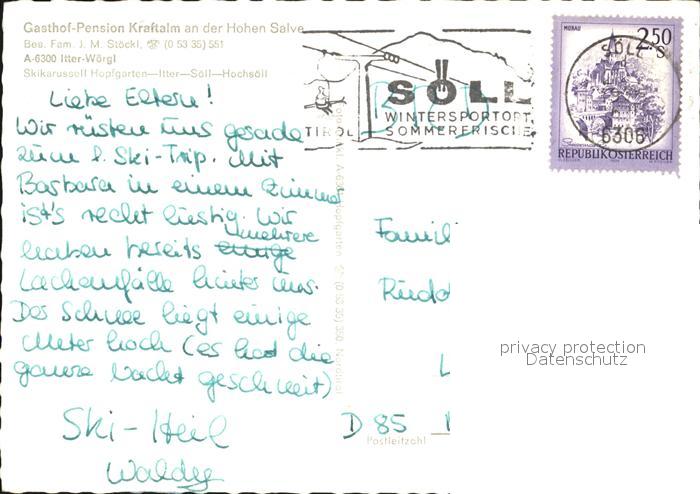 Gasthof-Pension Kraftalm an der Hohen Salve
Bes. Fam. J. M. Stöckl, ☏ (0 53 35) 551
A-6300 Itter-Wörgl
Skikarussell Hopfgarten—Itter—Söll—Hochsöll
Liebe Eltern!
Wir rüsten uns gerade
zum 1. Ski-Trip. Mit
Barbara in einem Zimmer
ist's recht lustig. Wir
mehrere
haben bereits einige
Lachanfälle hinter uns.
Der Schnee liegt einige
Meter hoch (es hat die
ganze Nacht geschneit)
Ski-Heil
TIROL
SÖLL
WINTERSPORTORT
SOMMERFRISCHE
MURAU
2.50
S
SÖLL
6306
REPUBLIK ÖSTERREICH
Famil
Rudo
L
D 85
Postleitzahl
privacy protection
Datenschutz